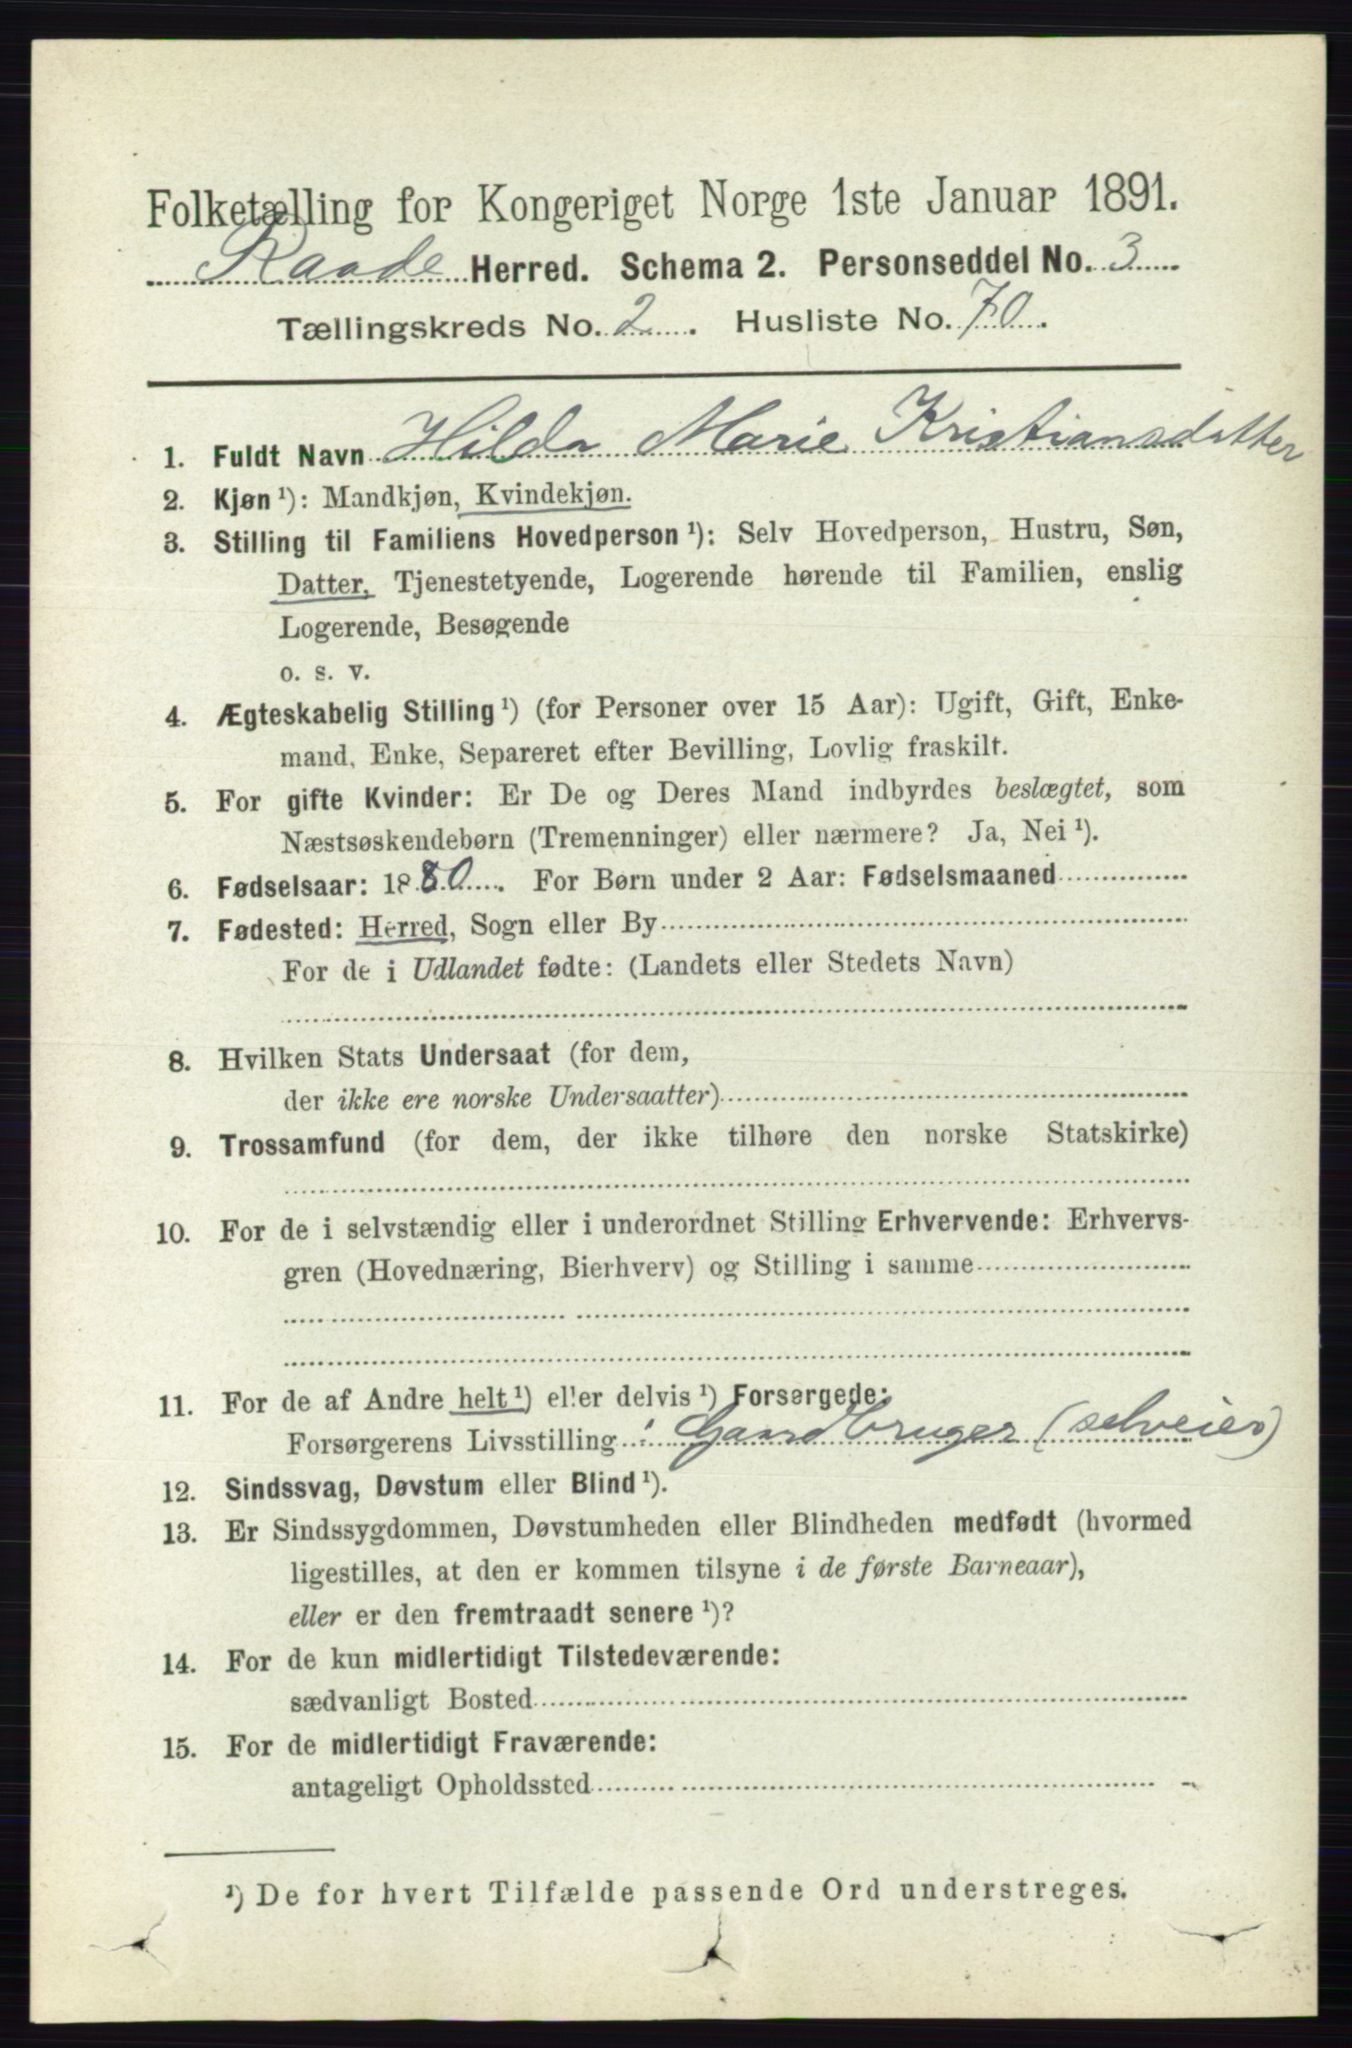 Folketælling for Kongeriget Norge 1ste Januar 1891.
Raade Herred. Schema 2. Personseddel No. 3
Tællingskreds No. 2. Husliste No. 70.
1. Fuldt Navn Hilda Marie Kristiansdatter
2. Kjøn ¹): Mandkjøn, Kvindekjøn.
3. Stilling til Familiens Hovedperson ¹): Selv Hovedperson, Hustru, Søn,
Datter, Tjenestetyende, Logerende hørende til Familien, enslig
Logerende, Besøgende
o. s. v.
4. Ægteskabelig Stilling ¹) (for Personer over 15 Aar): Ugift, Gift, Enke-
mand, Enke, Separeret efter Bevilling, Lovlig fraskilt.
5. For gifte Kvinder: Er De og Deres Mand indbyrdes beslægtet, som
Næstsøskendebørn (Tremenninger) eller nærmere? Ja, Nei ¹).
6. Fødselsaar: 1880. For Børn under 2 Aar: Fødselsmaaned
7. Fødested: Herred, Sogn eller By
For de i Udlandet fødte: (Landets eller Stedets Navn)
8. Hvilken Stats Undersaat (for dem,
der ikke ere norske Undersaatter)
9. Trossamfund (for dem, der ikke tilhøre den norske Statskirke)
10. For de i selvstændig eller i underordnet Stilling Erhvervende: Erhvervs-
gren (Hovednæring, Bierhverv) og Stilling i samme
11. For de af Andre helt ¹) eller delvis ¹) Forsørgede:
Forsørgerens Livsstilling: Gaardbruger (selveier)
12. Sindssvag, Døvstum eller Blind ¹).
13. Er Sindssygdommen, Døvstumheden eller Blindheden medfødt (hvormed
ligestilles, at den er kommen tilsyne i de første Barneaar),
eller er den fremtraadt senere ¹)?
14. For de kun midlertidigt Tilstedeværende:
sædvanligt Bosted
15. For de midlertidigt Fraværende:
antageligt Opholdssted
¹) De for hvert Tilfælde passende Ord understreges.